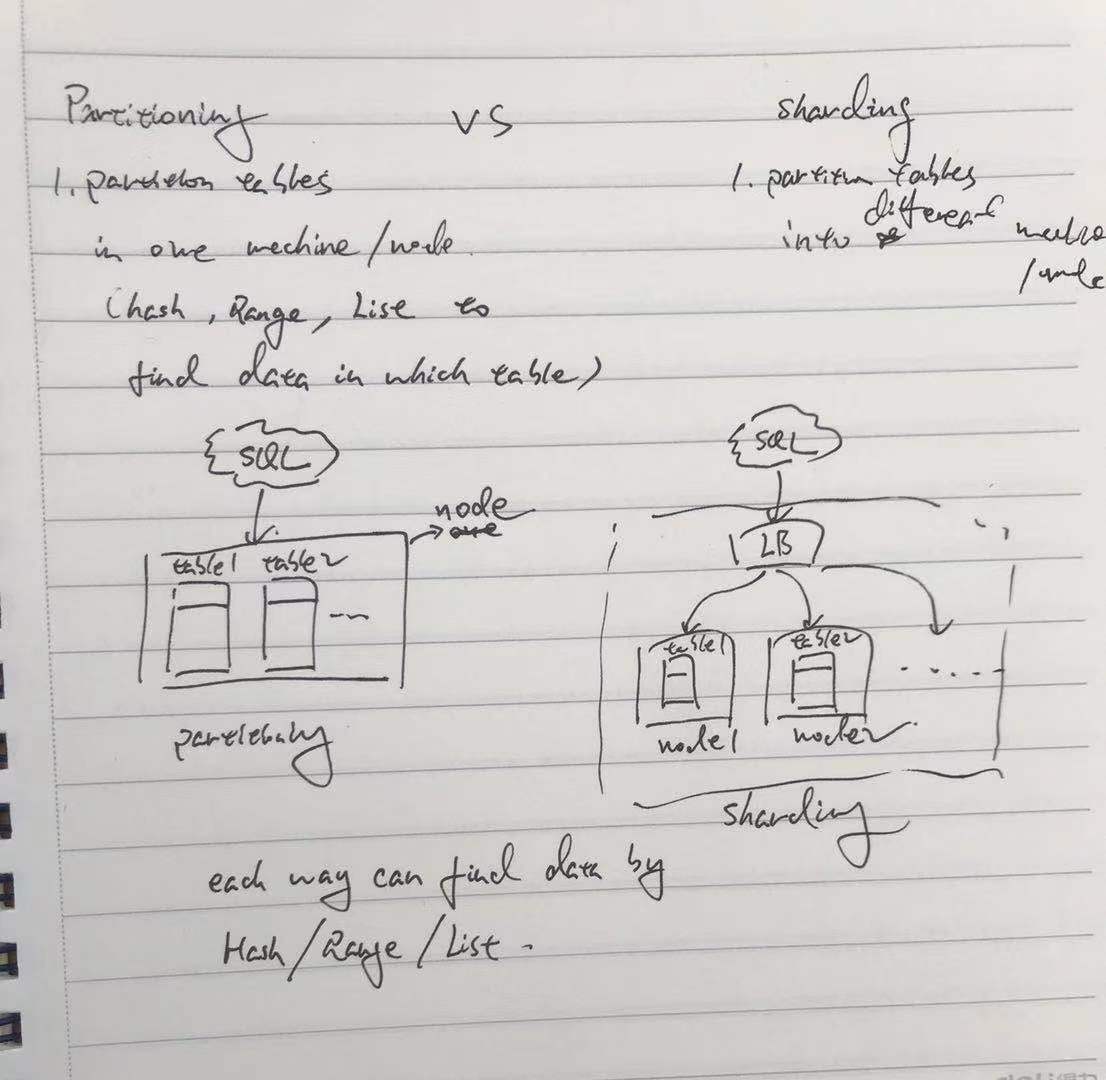 Partitioning VS sharding
1. partition tables
in one mechine/node.
(hash, Range, List to
find data in which table)
1. partition tables
into different
SQL
node
table1 table2
partitioning
SQL
LB
table1 table2
node1 node2
sharding
each way can find data by
Hash/Range/List.